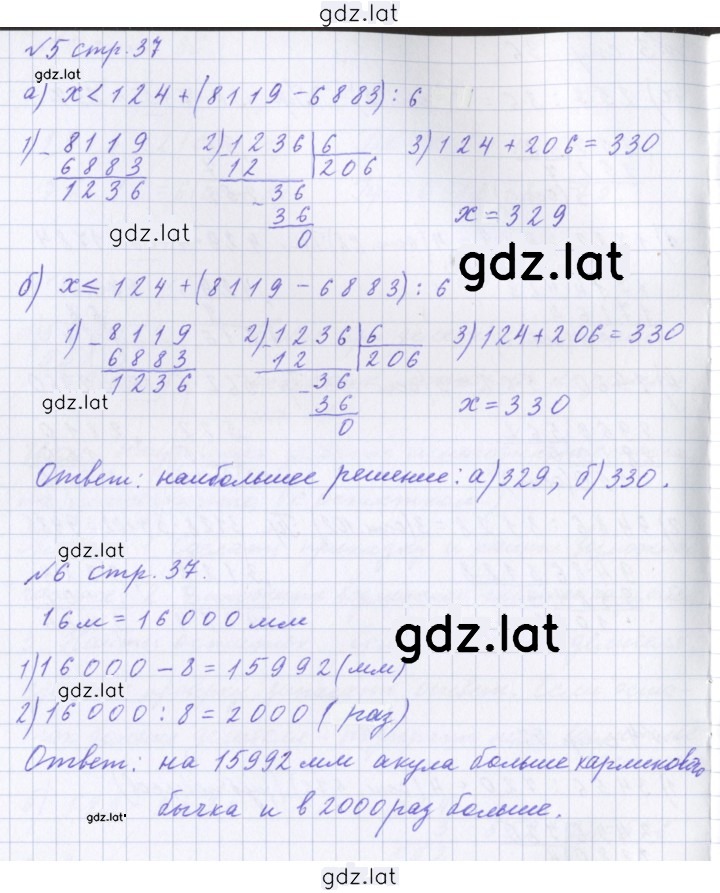 gdz.lat
№5 стр. 37
gdz.lat
а) x < 124 + (8119 − 6883) : 6
1) − 8119 2) − 1236 | 6 3) 124 + 206 = 330
6883 12 | 206
1236 − 36
36 x = 329
gdz.lat 0
gdz.lat
б) x ≤ 124 + (8119 − 6883) : 6
1) − 8119 2) − 1236 | 6 3) 124 + 206 = 330
6883 12 | 206
1236 − 36
gdz.lat 36 x = 330
0
Ответ: наибольшее решение: а) 329, б) 330.
gdz.lat
№6 стр. 37.
16 м = 16000 мм
gdz.lat
1) 16000 − 8 = 15992 (мм)
gdz.lat
2) 16000 : 8 = 2000 (раз)
Ответ: на 15992 мм акула больше карликового
gdz.lat
бычка и в 2000 раз больше.
gdz.lat